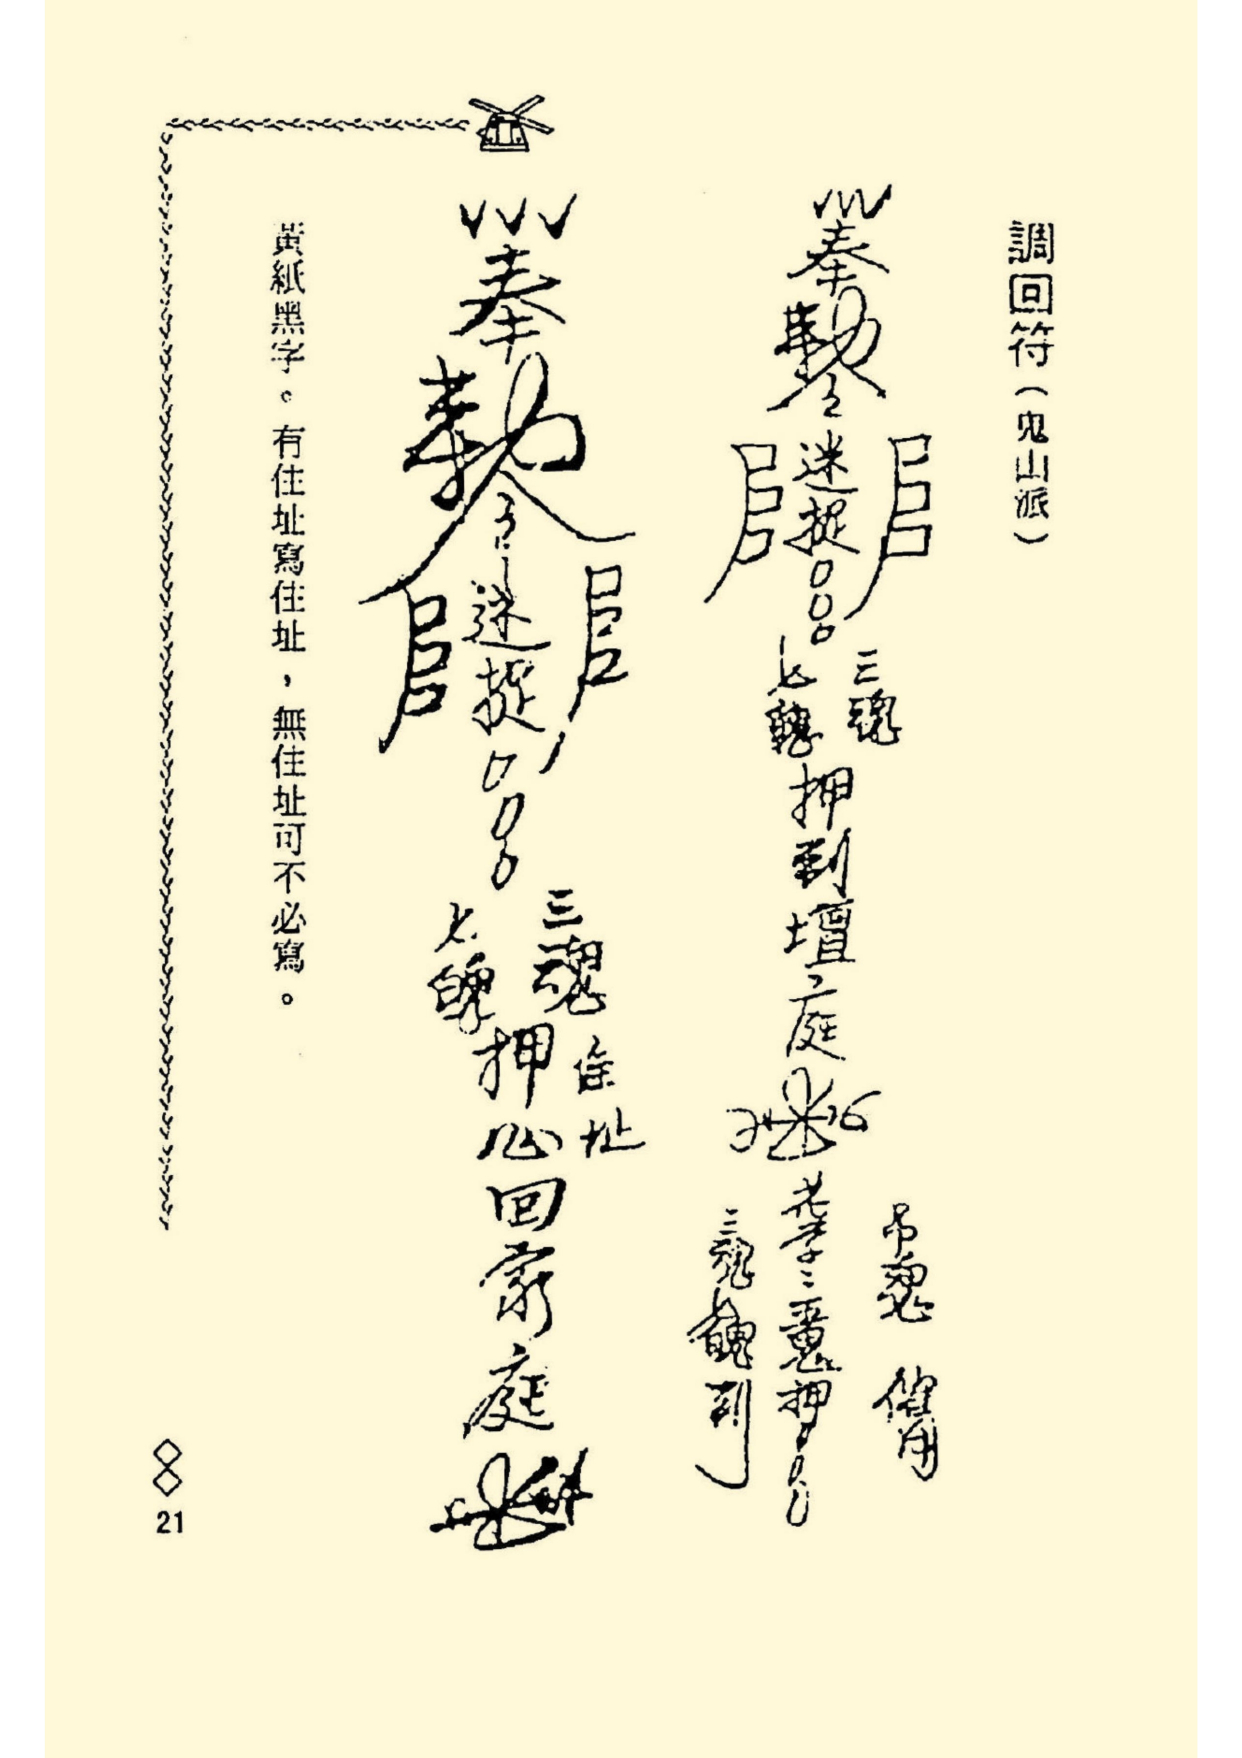 調回符（鬼山派）
奉
勅
令
速
捉
〇〇〇
三魂
七魄
押
到
壇
庭
三魂
到
押〇〇
奉
勅
令
速
捉
〇〇〇
三魂
七魄
住址
押
回
家
庭
黃紙黑字。有住址寫住址，無住址可不必寫。
21